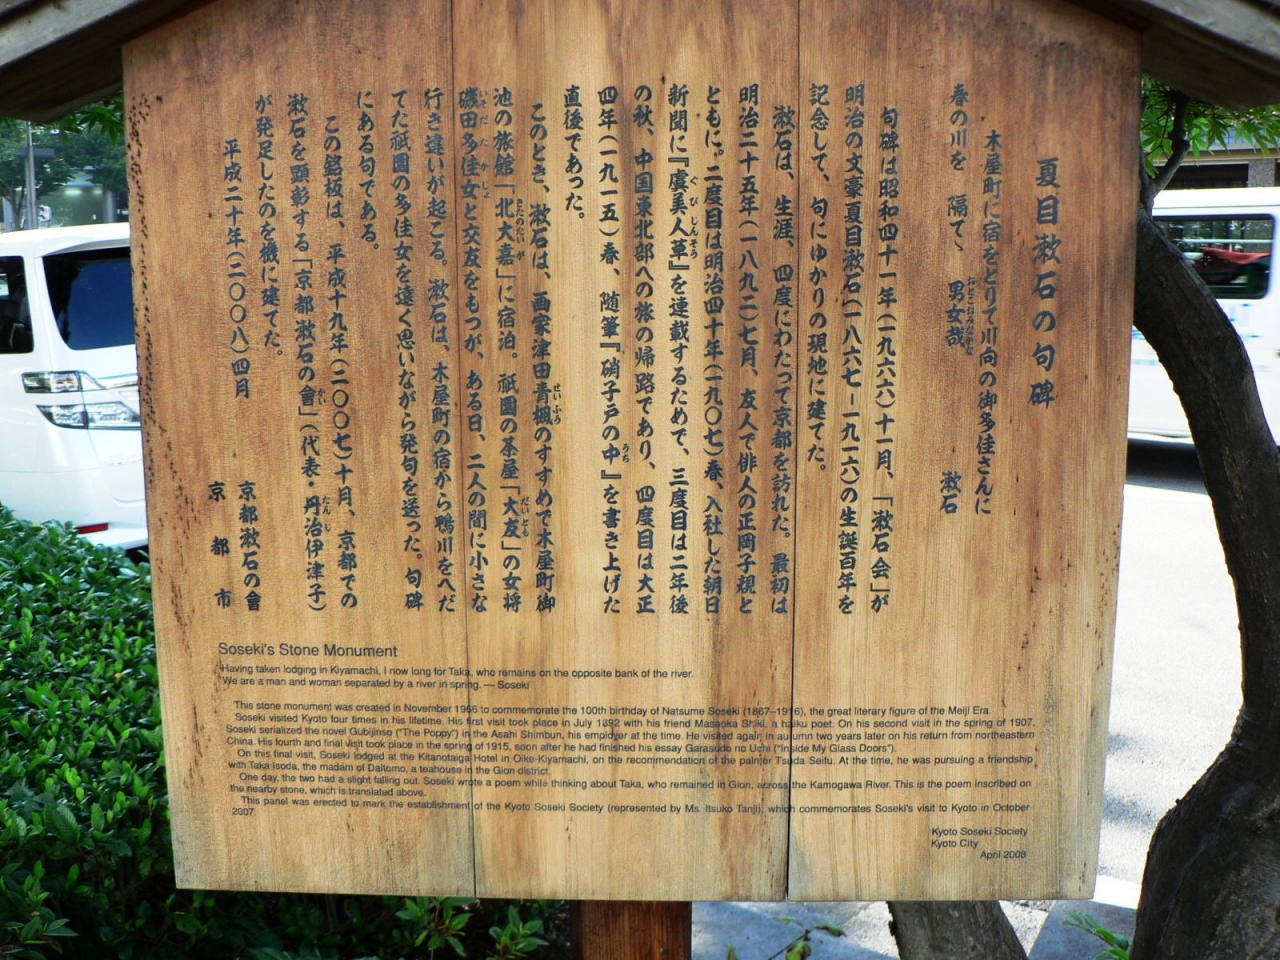 夏目漱石の句碑
木屋町に宿をとりて川向の御多佳さんに
春の川を 隔てゝ 男女哉 漱石
句碑は昭和四十一年(一九六六)十一月、「漱石会」が
明治の文豪夏目漱石(一八六七-一九一六)の生誕百年を
記念して、句にゆかりの現地に建てた。
漱石は、生涯、四度にわたって京都を訪れた。最初は
明治二十五年(一八九二)七月、友人で俳人の正岡子規と
ともに。二度目は明治四十年(一九〇七)春、入社した朝日
新聞に『虞美人草』を連載するためで、三度目は二年後
の秋、中国東北部への旅の帰路であり、四度目は大正
四年(一九一五)春、随筆『硝子戸の中』を書き上げた
直後であった。
このとき、漱石は、画家津田青楓のすすめで木屋町御
池の旅館「北大嘉」に宿泊。祇園の茶屋「大友」の女将
磯田多佳女と交友をもつが、ある日、二人の間に小さな
行き違いが起こる。漱石は、木屋町の宿から鴨川をへだ
てた祇園の多佳女を遠く思いながら発句を送った。句碑
にある句である。
この銘板は、平成十九年(二〇〇七)十月、京都での
漱石を顕彰する「京都漱石の會」(代表・丹治伊津子)
が発足したのを機に建てた。
平成二十年(二〇〇八)四月
京都漱石の會
京都市
Soseki's Stone Monument
Having taken lodging in Kiyamachi, I now long for Taka, who remains on the opposite bank of the river.
We are a man and woman separated by a river in spring. — Soseki
This stone monument was created in November 1966 to commemorate the 100th birthday of Natsume Soseki (1867–1916), the great literary figure of the Meiji Era.
Soseki visited Kyoto four times in his lifetime. His first visit took place in July 1892 with his friend Masaoka Shiki, a haiku poet. On his second visit in the spring of 1907,
Soseki serialized the novel Gubijinso ("The Poppy") in the Asahi Shimbun, his employer at the time. He visited again in autumn two years later on his return from northeastern
China. His fourth and final visit took place in the spring of 1915, soon after he had finished his essay Garasudo no Uchi ("Inside My Glass Doors").
On this final visit, Soseki lodged at the Kitanotaiga Hotel in Oike-Kiyamachi, on the recommendation of the painter Tsuda Seifu. At the time, he was pursuing a friendship
with Taka Isoda, the madam of Daitomo, a teahouse in the Gion district.
One day, the two had a slight falling out. Soseki wrote a poem while thinking about Taka, who remained in Gion, across the Kamogawa River. This is the poem inscribed on
the nearby stone, which is translated above.
This panel was erected to mark the establishment of the Kyoto Soseki Society (represented by Ms. Itsuko Tanji), which commemorates Soseki's visit to Kyoto in October
2007.
Kyoto Soseki Society
Kyoto City
April 2008